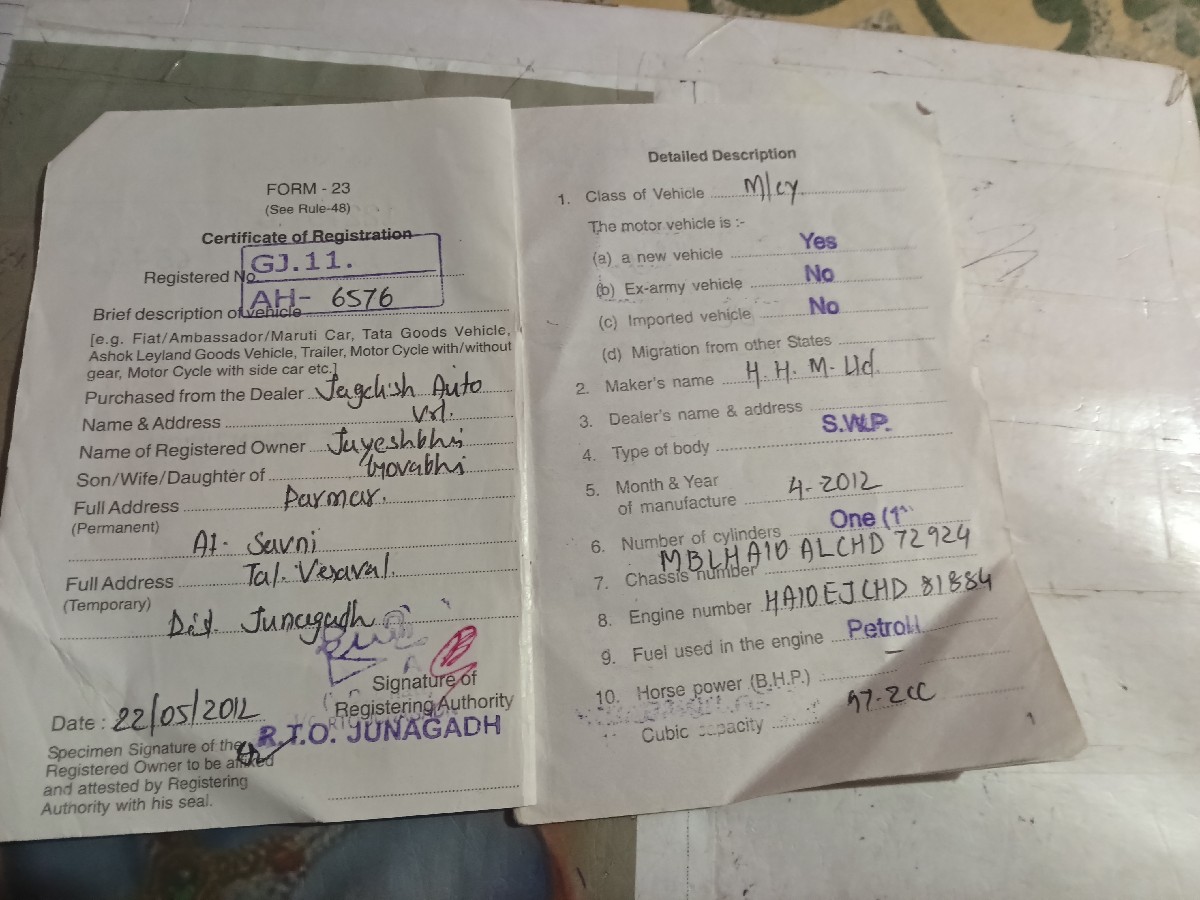 FORM - 23
(See Rule-48)
Certificate of Registration
Registered No GJ.11.
AH- 6576
Brief description of vehicle
[e.g. Fiat/Ambassador/Maruti Car, Tata Goods Vehicle,
Ashok Leyland Goods Vehicle, Trailer, Motor Cycle with/without
gear, Motor Cycle with side car etc.]
Purchased from the Dealer Jagdish Auto
Name & Address Vrl.
Name of Registered Owner Jayeshbhi
Son/Wife/Daughter of Govabhi
Full Address Parmar.
(Permanent)
At- Savni
Full Address Tal. Veraval.
(Temporary)
Dist. Junagadh
Signature of
Registering Authority
Date : 22/05/2012
R.T.O. JUNAGADH
Specimen Signature of the
Registered Owner to be affixed
and attested by Registering
Authority with his seal.
Detailed Description
1. Class of Vehicle M/cy.
The motor vehicle is :-
(a) a new vehicle Yes
(b) Ex-army vehicle No
(c) Imported vehicle No
(d) Migration from other States
2. Maker's name H. H. M. Ltd.
3. Dealer's name & address
4. Type of body S.W.P.
5. Month & Year
of manufacture 4-2012
6. Number of cylinders One (1
7. Chassis number MBLHA10 ALCHD 72924
8. Engine number HA10EJCHD 81884
9. Fuel used in the engine Petrol
10. Horse power (B.H.P.) —
Cubic capacity 97-2CC
1